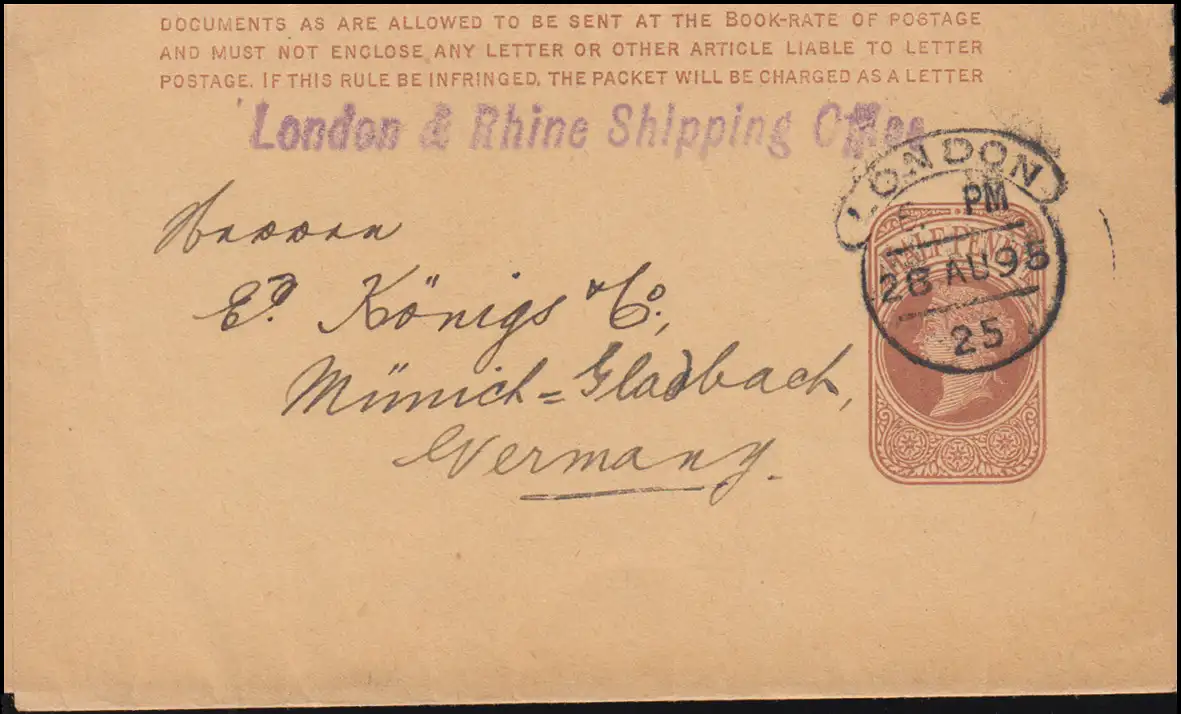 DOCUMENTS AS ARE ALLOWED TO BE SENT AT THE BOOK-RATE OF POSTAGE
AND MUST NOT ENCLOSE ANY LETTER OR OTHER ARTICLE LIABLE TO LETTER
POSTAGE. IF THIS RULE BE INFRINGED, THE PACKET WILL BE CHARGED AS A LETTER
London & Rhine Shipping Office
LONDON
PM
28 AU 95
25
HALFPENNY
Herren
Ed Königs & Co.,
Münich=Gladbach,
Germany.